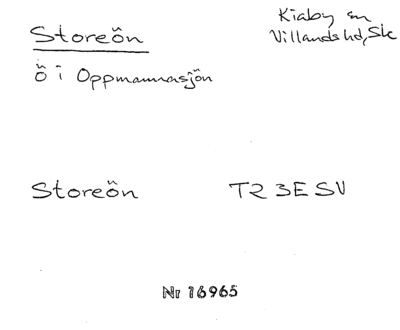 Storeön
Kiaby sn
Villands hd, Sk
ö i Oppmannasjön
Storeön TR 3E SV
Nr 16965